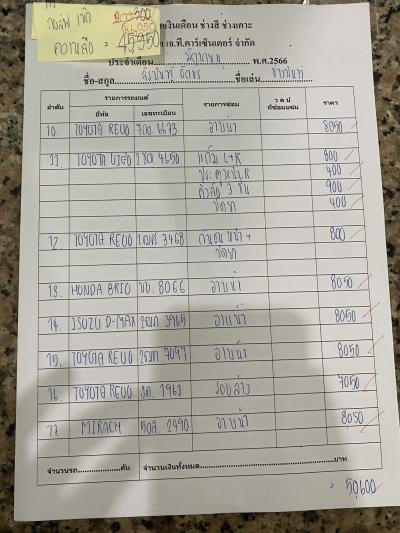 คงเหลือ 45,950
เงินเดือน ช่างสี ช่างเคาะ
เอ.ที.คาร์เซ็นเตอร์ จำกัด
ประจำเดือน มิถุนายน พ.ศ.2566
ชื่อ-สกุล ชื่อเล่น
ลำดับ รายการรถยนต์ รายการซ่อม ว ด ป ที่ซ่อมแซม ราคา
ยี่ห้อ เลขทะเบียน
10. TOYOTA REVO 6673 อาบน้ำ 8050
11 TOYOTA VIGO 4650 แก้ม L+R 800
ประตูหน้า R 400
3 ชิ้น 900
ขัดยา 400
12 TOYOTA REVO 3468 กันชนหน้า + 800
ขัดยา
13. HONDA BRIO 8066 อาบน้ำ 8050
14. ISUZU D-MAX 3965 อาบน้ำ 8050
15. TOYOTA REVO 7097 อาบน้ำ 8050
16. TOYOTA REVO 1962 รอบล่าง 7050
17. MIRACH 2490 อาบน้ำ 8050
จำนวนรถ....................คัน จำนวนเงินทั้งหมด........................................บาท
= 50,600